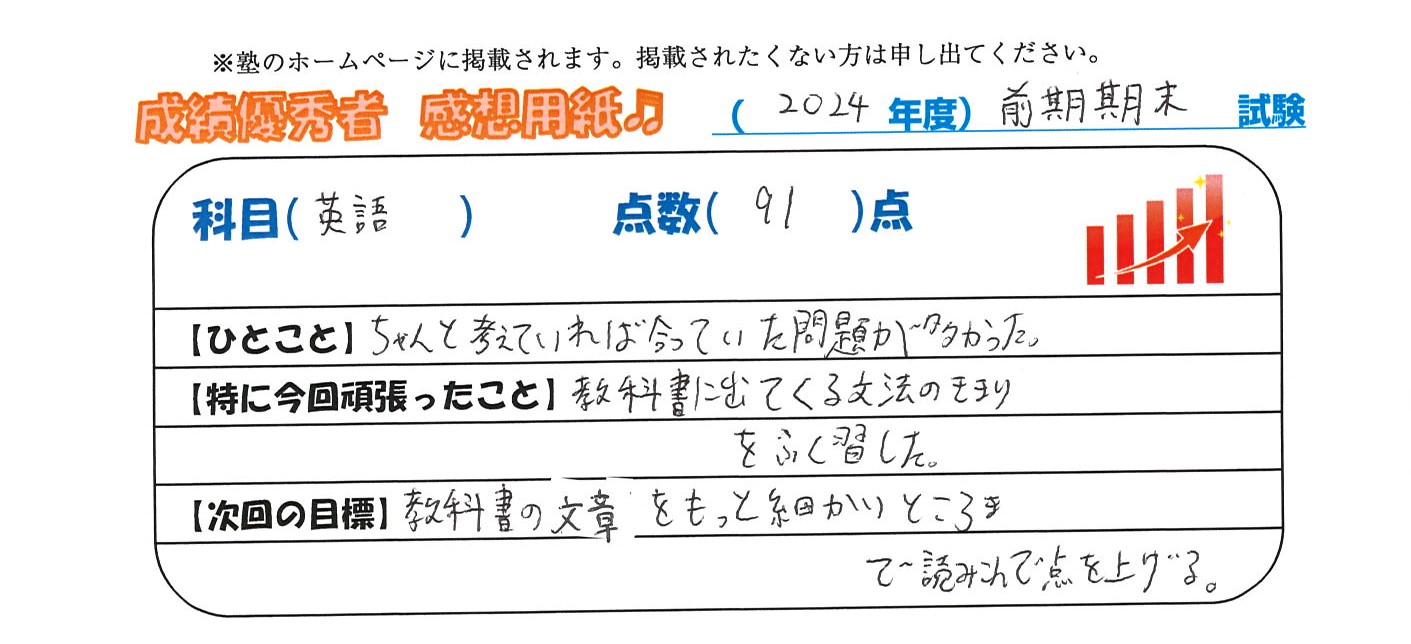 ※塾のホームページに掲載されます。掲載されたくない方は申し出てください。
成績優秀者 感想用紙♫ (2024年度)前期期末 試験
科目(英語) 点数(91)点
【ひとこと】ちゃんと考えていれば合っていた問題が多かった。
【特に今回頑張ったこと】教科書に出てくる文法のきまり
をふく習した。
【次回の目標】教科書の文章をもっと細かいところま
で読みこんで点を上げる。